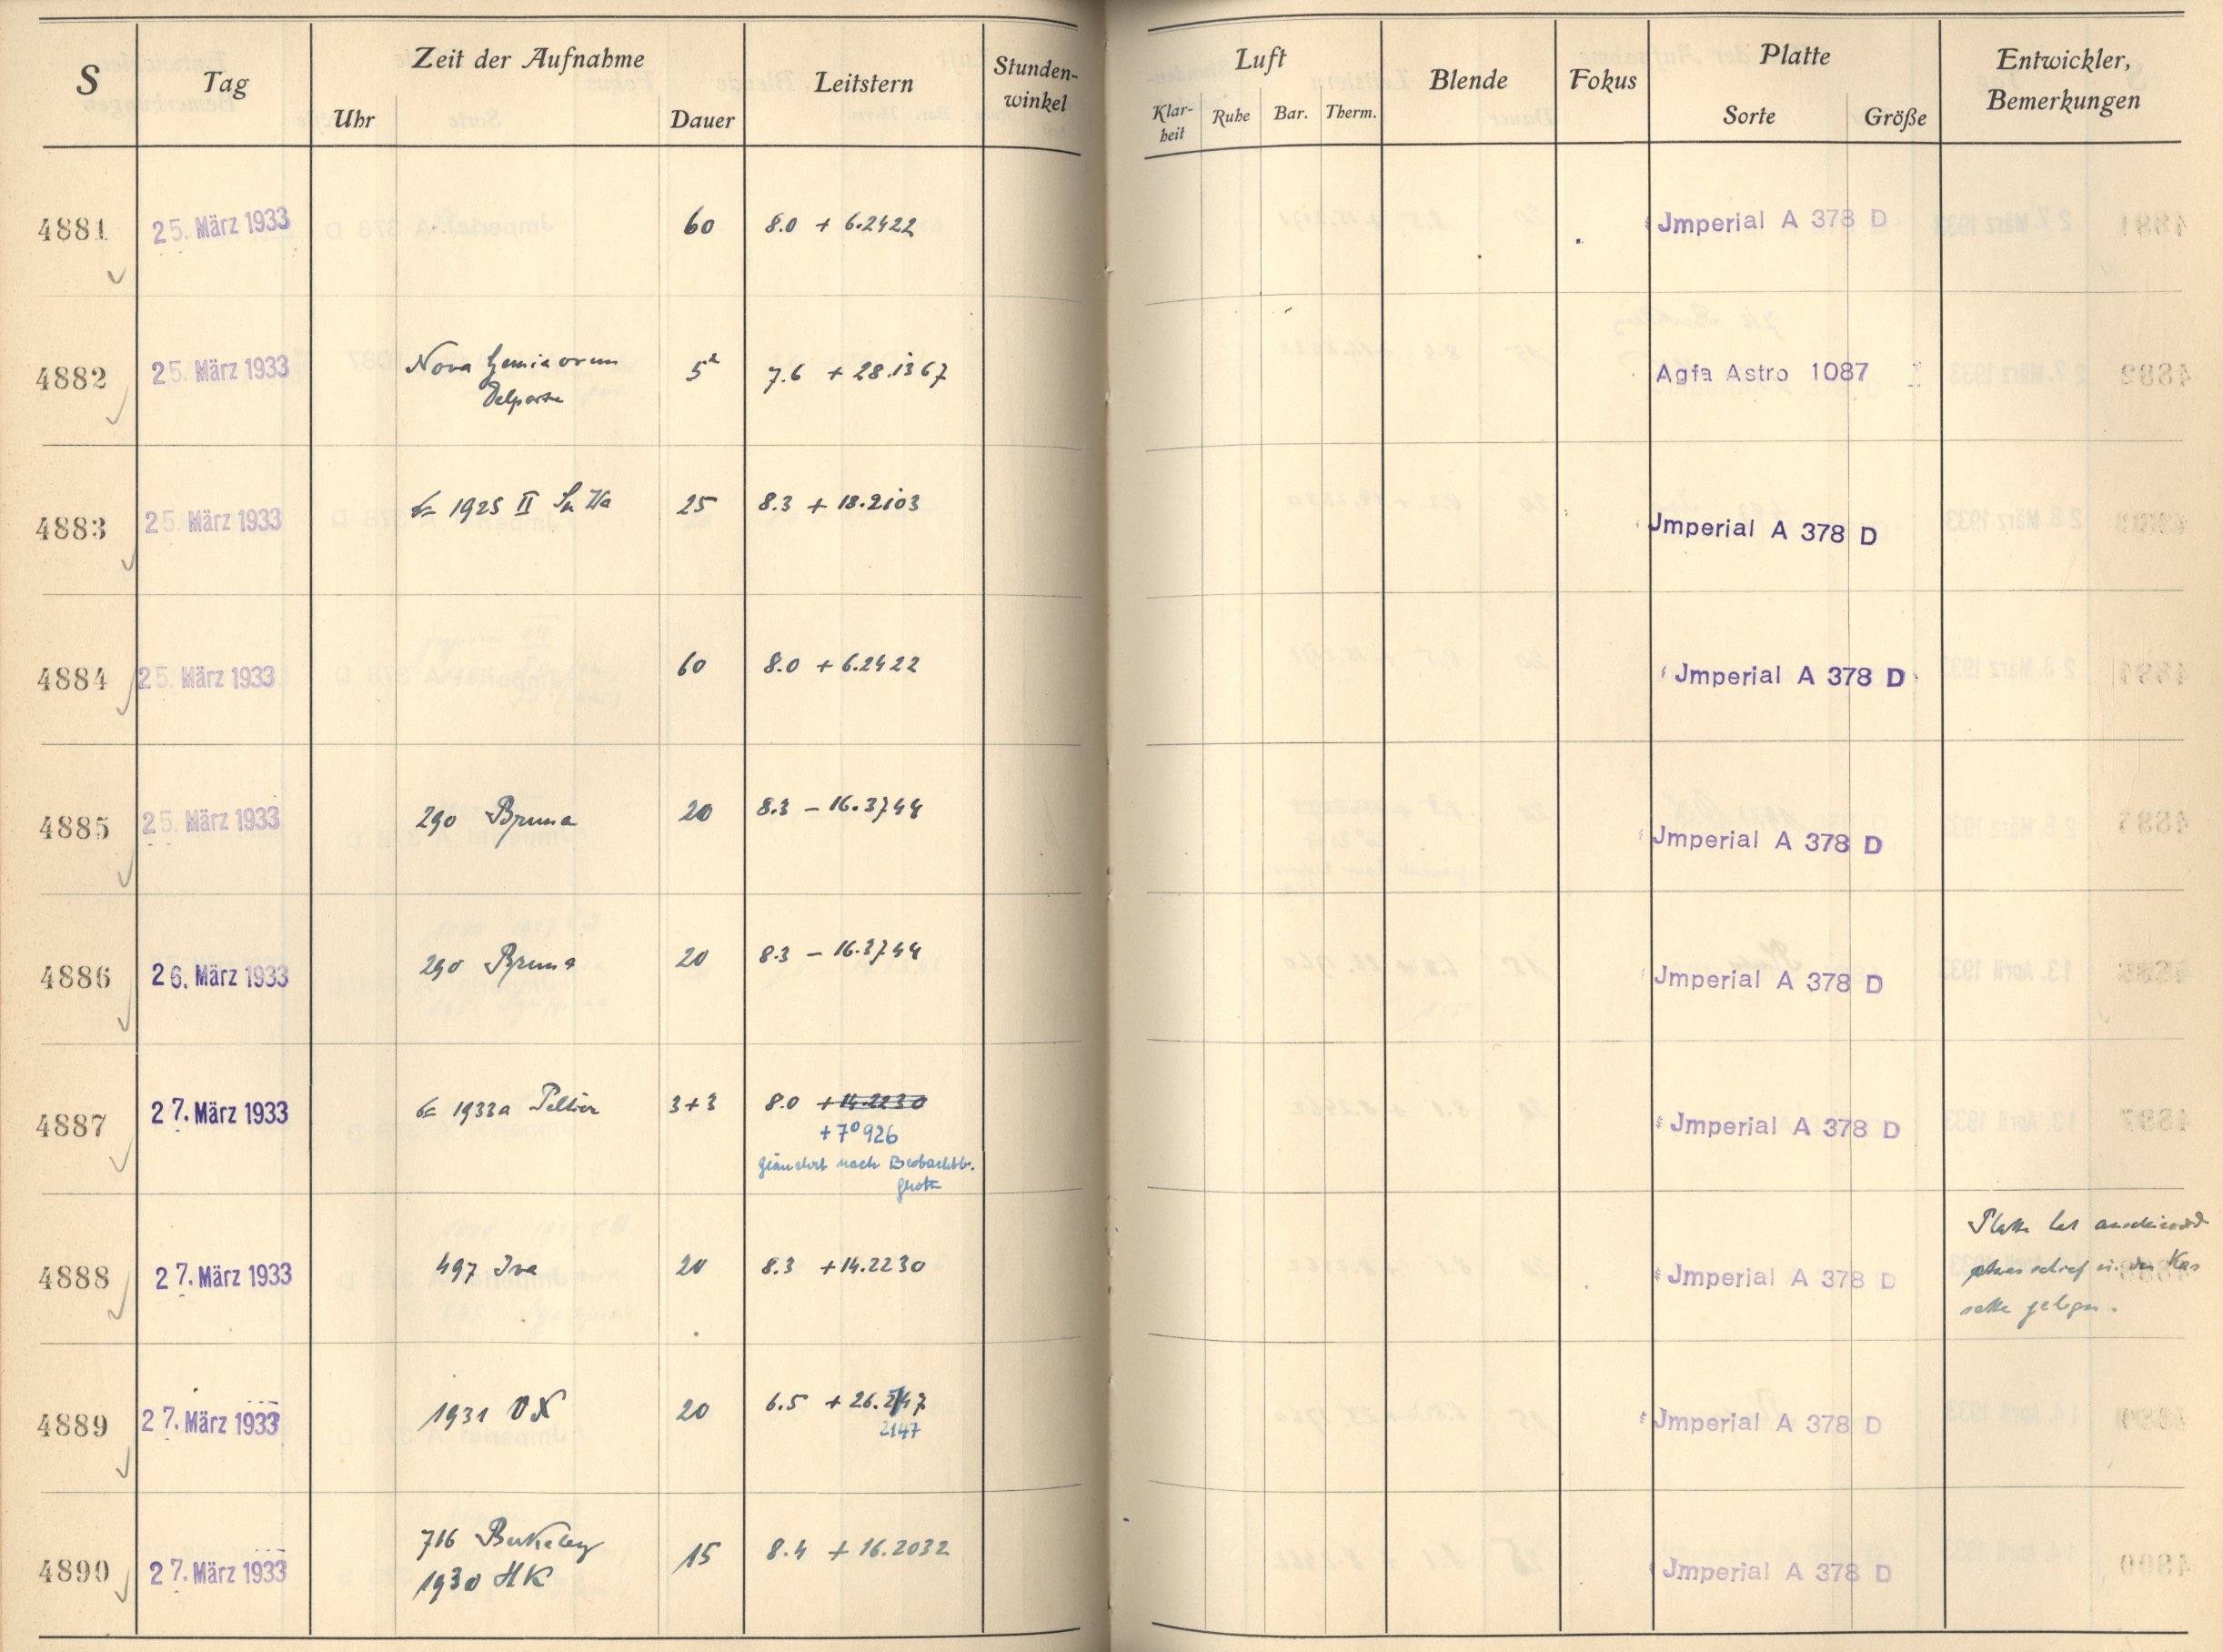 S Tag Zeit der Aufnahme Leitstern Stunden-winkel Luft Blende Fokus Platte Entwickler, Bemerkungen
Uhr Dauer Klar-heit Ruhe Bar. Therm. Sorte Größe
4881 25. März 1933 60 8.0 + 6.2422 Jmperial A 378 D
4882 25. März 1933 Nova Geminorum 5 7.6 + 28.1367 Agfa Astro 1087
Delporte
4883 25. März 1933 1925 II 25 8.3 + 18.2103 Jmperial A 378 D
4884 25. März 1933 60 8.0 + 6.2422 Jmperial A 378 D
4885 25. März 1933 290 Bruna 20 8.3 - 16.3744 Jmperial A 378 D
4886 26. März 1933 290 Bruna 20 8.3 - 16.3744 Jmperial A 378 D
4887 27. März 1933 1933a Peltier 3+3 8.0 +14.2230 Jmperial A 378 D
+7° 926
geändert nach Beobachtb.
4888 27. März 1933 497 Iva 20 8.3 +14.2230 Jmperial A 378 D Platte hat anscheinend
etwas schief in der Kas
sette gelegen.
4889 27. März 1933 1931 20 6.5 + 26. Jmperial A 378 D
2147
4890 27. März 1933 716 Berkeley 15 8.4 + 16.2032 Jmperial A 378 D
1930 HK